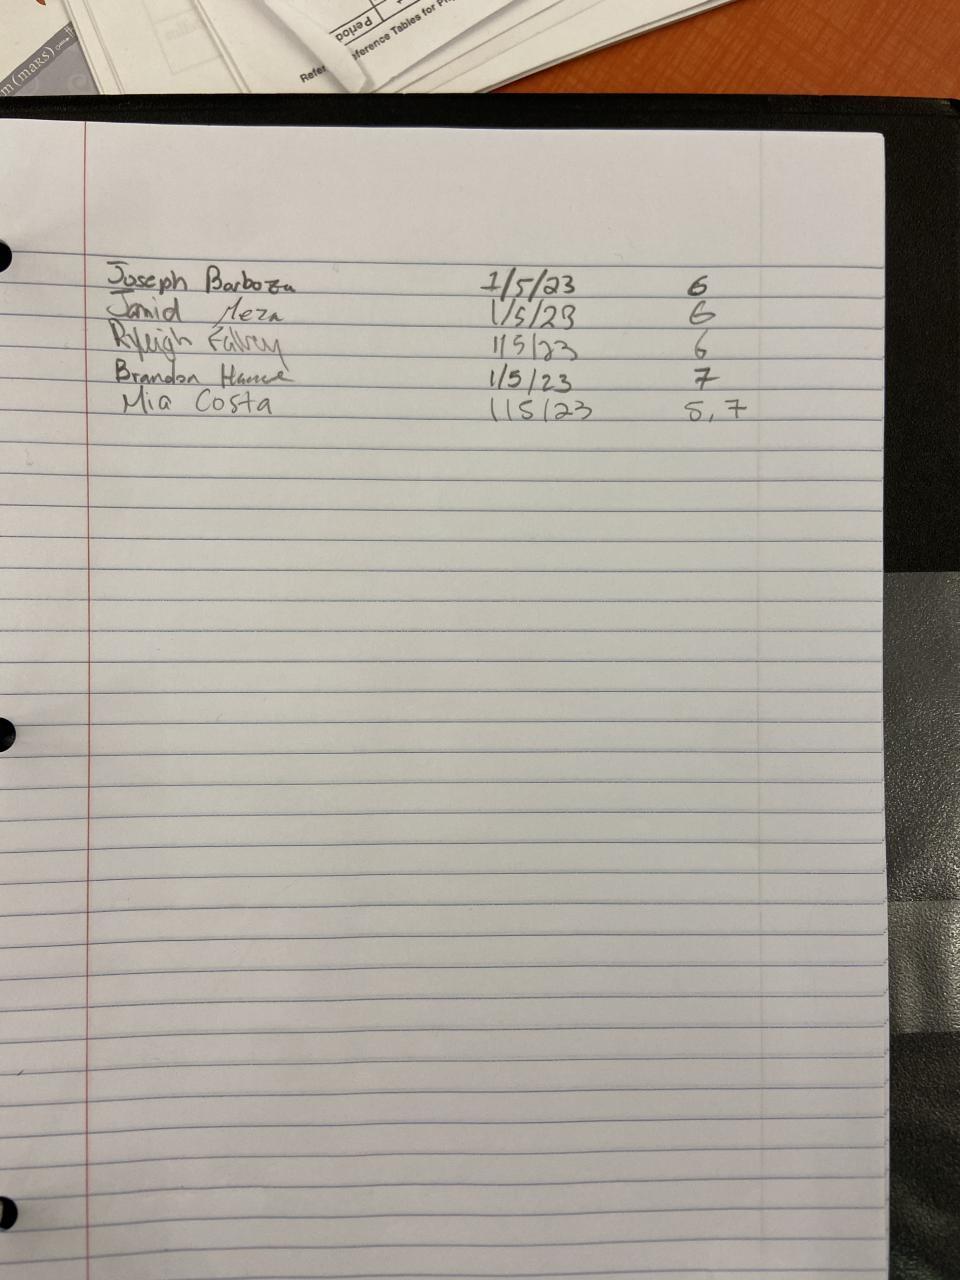 m (MARS)
Period
Refer
ference Tables for Ph
Joseph Barboza 1/5/23 6
Jamid Meza 1/5/23 6
Ryleigh Falvey 1/5/23 6
Brandon 1/5/23 7
Mia Costa 1/5/23 5, 7